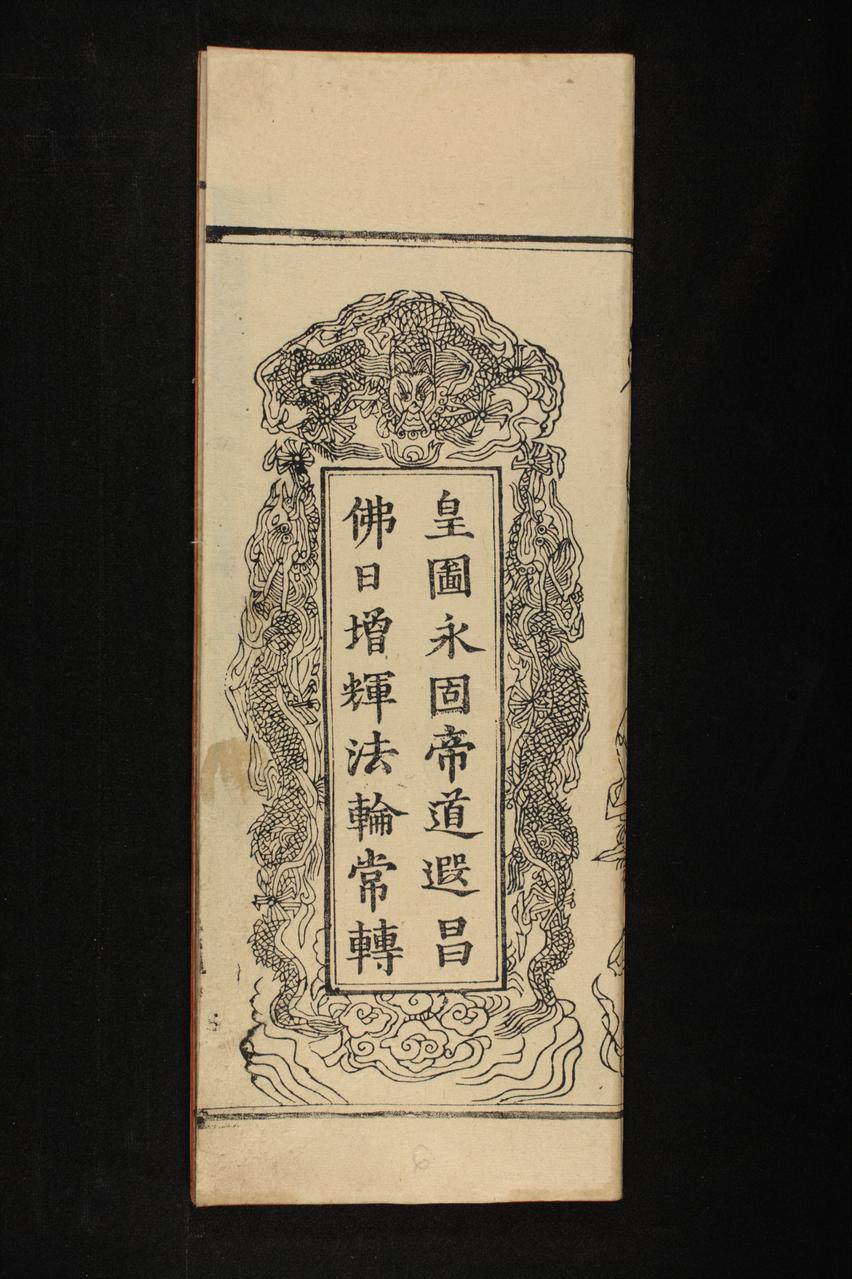 皇圖永固帝道遐昌
佛日增輝法輪常轉
6